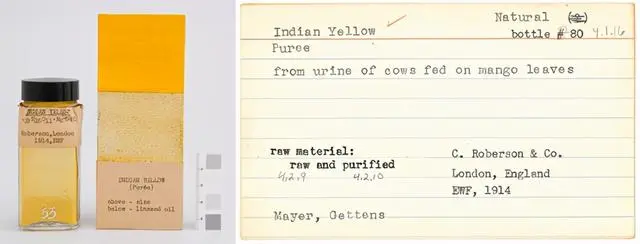 INDIAN YELLOW
Roberson, London
1914, EWF
53
INDIAN YELLOW
(Purée)
above - size
below - linseed oil
Natural
Indian Yellow
bottle # 80 4.1.16
Puree
from urine of cows fed on mango leaves
raw material:
raw and purified
4.2.9 4.2.10
C. Roberson & Co.
London, England
EWF, 1914
Mayer, Gettens